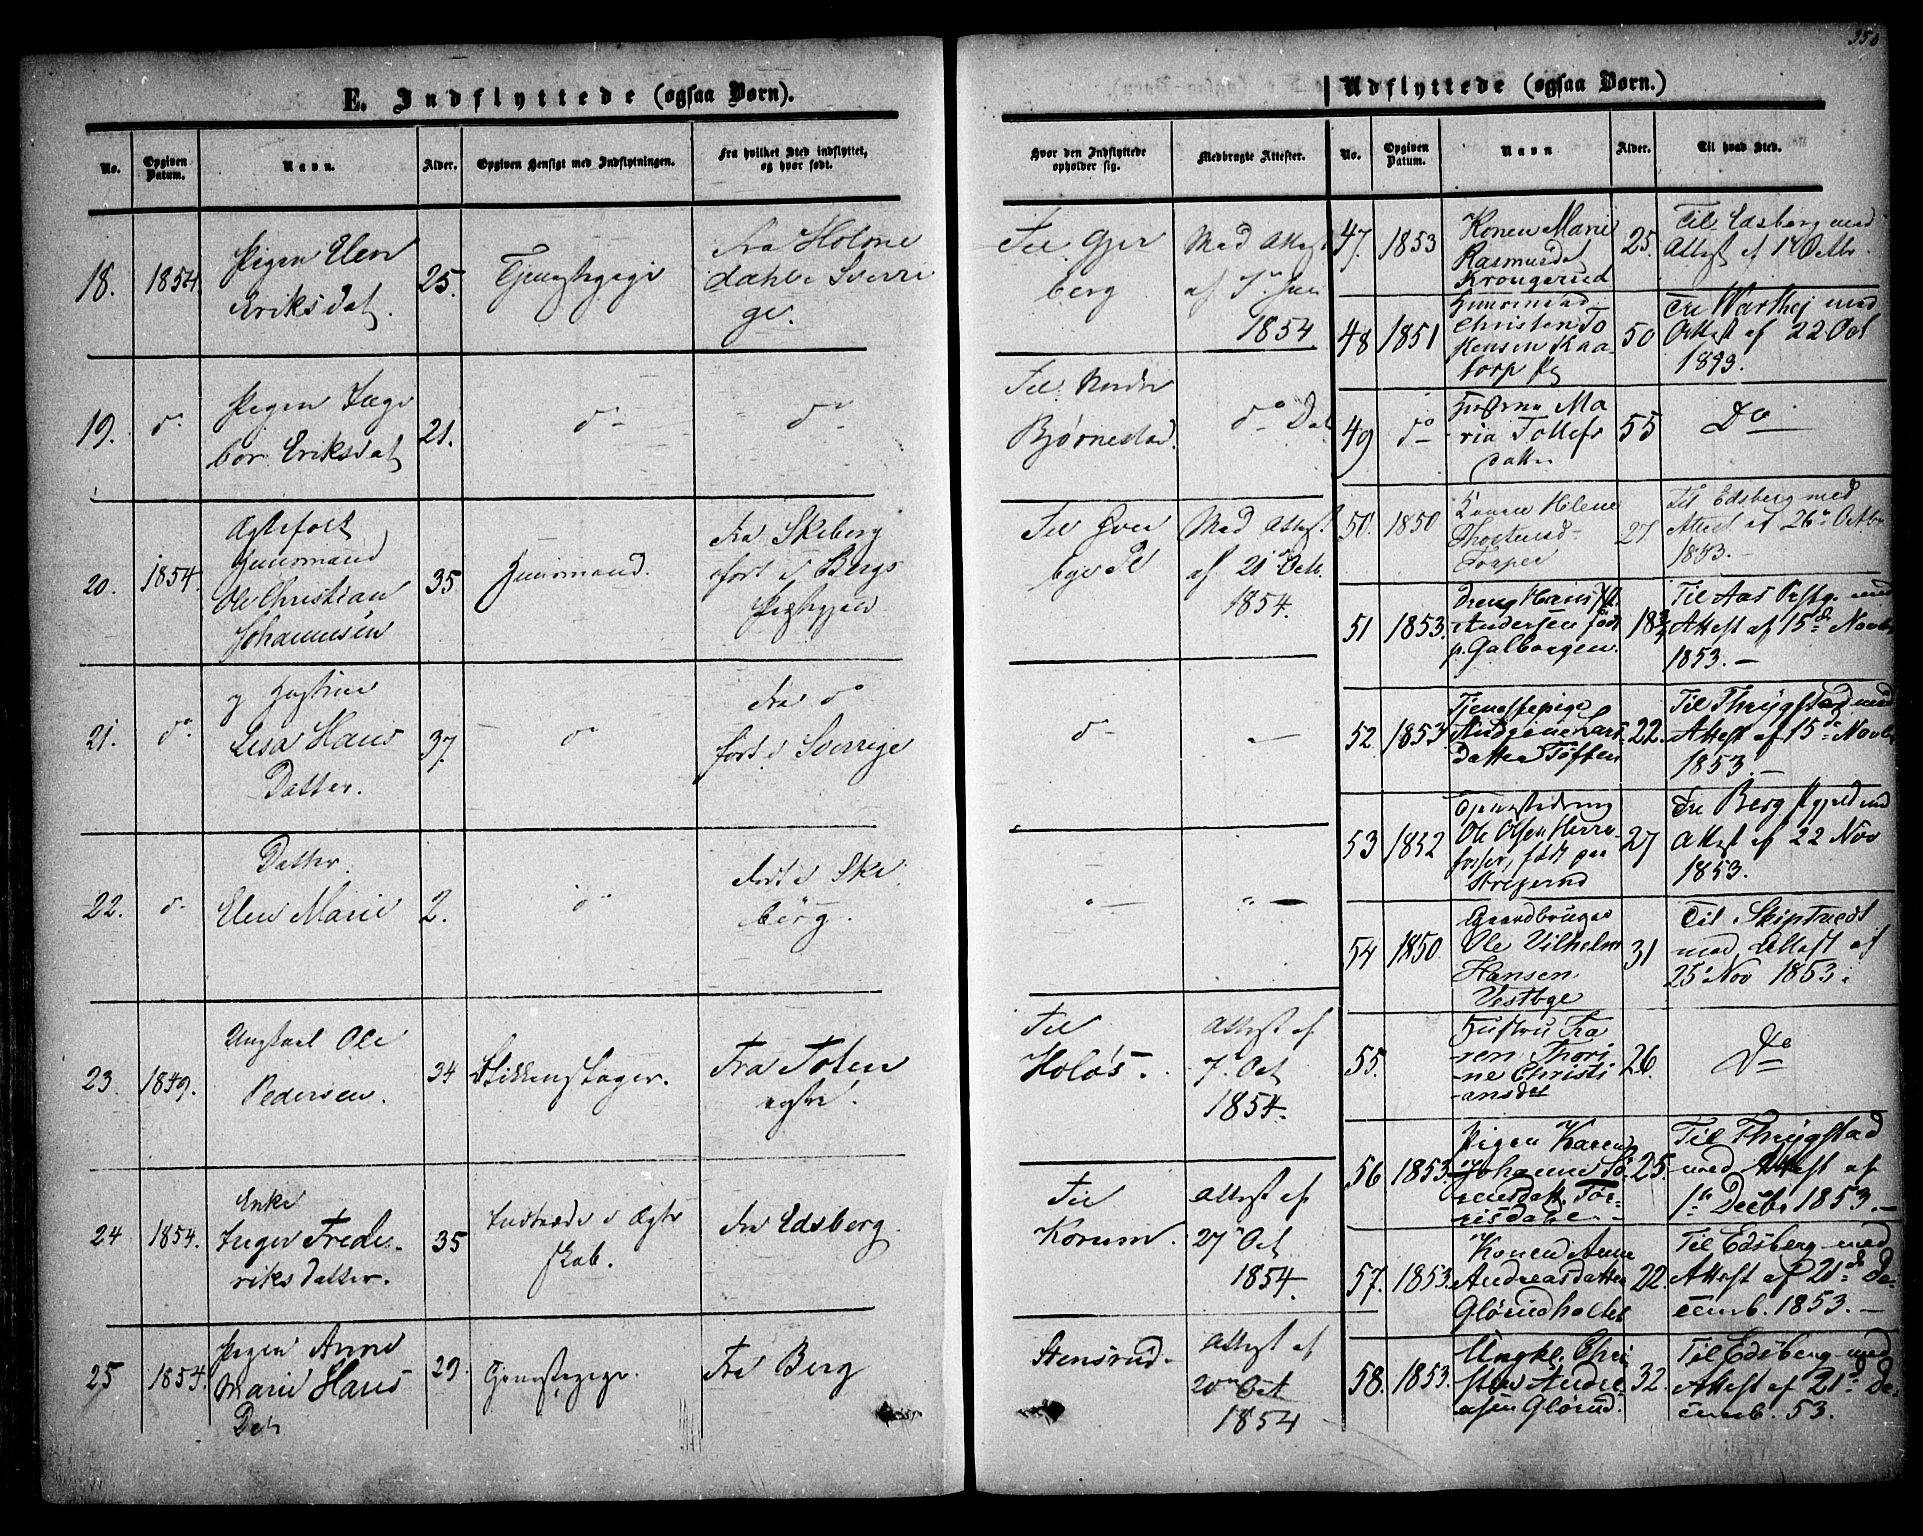 350
E. Indflyttede (ogsaa Børn).
No.
Opgiven Datum.
Navn.
Alder.
Opgiven Hensigt med Indflytningen.
Fra hvilket Sted indflyttet,
og hvor født.
Hvor den Indflyttede
opholder sig.
Medbragte Attester.
18.
1854.
Pigen Elen
Eriksdat.
25.
Tjenstepige
Fra Holme
dahl i Sverri
ge.
Til Gjer
berg
Med Attest
af
1854
19.
do
Pigen Inge
bor Eriksdat
21.
do
do
Til Nordr
Bjørnestad.
do Dat
20.
1854.
Ægtefolk
Huusmand
Ole Christian
Johannesen
35
Huusmand.
Fra Skeberg
født i Bergs
Præstegjeld
Til
Med Attest
af 21 Octb.
1854.
21.
do
Lisa Hans
Datter.
37.
do
Fra do
født i Sverrige
do
22.
do
Datter.
Elen Marie
2.
do
født i Ske
berg.
23.
1849.
Ungkarl Ole
Pedersen.
34
Fra Toten
Til
Holøs.
Attest af
7 Oct
1854.
24
1854.
Enke
Inger Frede
riksdatter.
35
Indtræde i Ægte
skab.
Fra Edsberg.
Til
Korum.
Attest af
27 Oct
1854.
25
1854.
Pigen Anne
Marie Hans
Dat
29.
Tjenstepige.
Fra Berg
Stensrud.
Attest af
20 Oct
1854
Udflyttede (ogsaa Børn.)
No.
Opgiven Datum.
Navn
Alder.
Til hvad Sted.
47.
1853
Konen Marie
Rasmusdat
Krougerud
25.
Til Edsberg med
Attest af 14 Octbr.
48
1851
Huusmand
Christen To
50
Attest af 22 Oct
1893.
49
do
Maria Tollefs
datter
55
Do
50.
1850
Konen Helene
27
Til Edsberg med
Attest af 26 Octbr
1853.
51
1853.
Dreng Hans
Andersen født
p. Galborgen.
18 3/4
Til Aas Præstg. med
Attest af 15d Novbr
1853.
52.
1853
Tjenestepige
Andrine Lars
Datter Toften
22.
Til Thrygstad med
Attest af 15de Novbr
1853.
53
1852
Tjenestedreng
Ole Olsen Herre
fosser, født paa
27
Til Berg Pgjeld med
Attest af 22 Nov
1853.
54
1850
Gaardbruger
Ole Vilhelm
Hansen
Vestbye
31
Til Skiptvedt
med Attest af
25 Nov 1853.
55.
Hustru Ka
ren Thori
ne Christi
ansdat
26.
Do
56
1853.
Pigen Karen
Johanne
25.
Til Thrygstad
med Attest af
1ste Decbr 1853.
57.
1853.
Konen Anne
Andreasdatter
Glørudholtet
22.
Til Edsberg med
Attest af 21de De-
cemb. 1853.
58.
1853.
Ungkl. Chri
stian Andre
asen Glørud.
32.
Til Edsberg med
Attest af 21de De
cemb. 53.